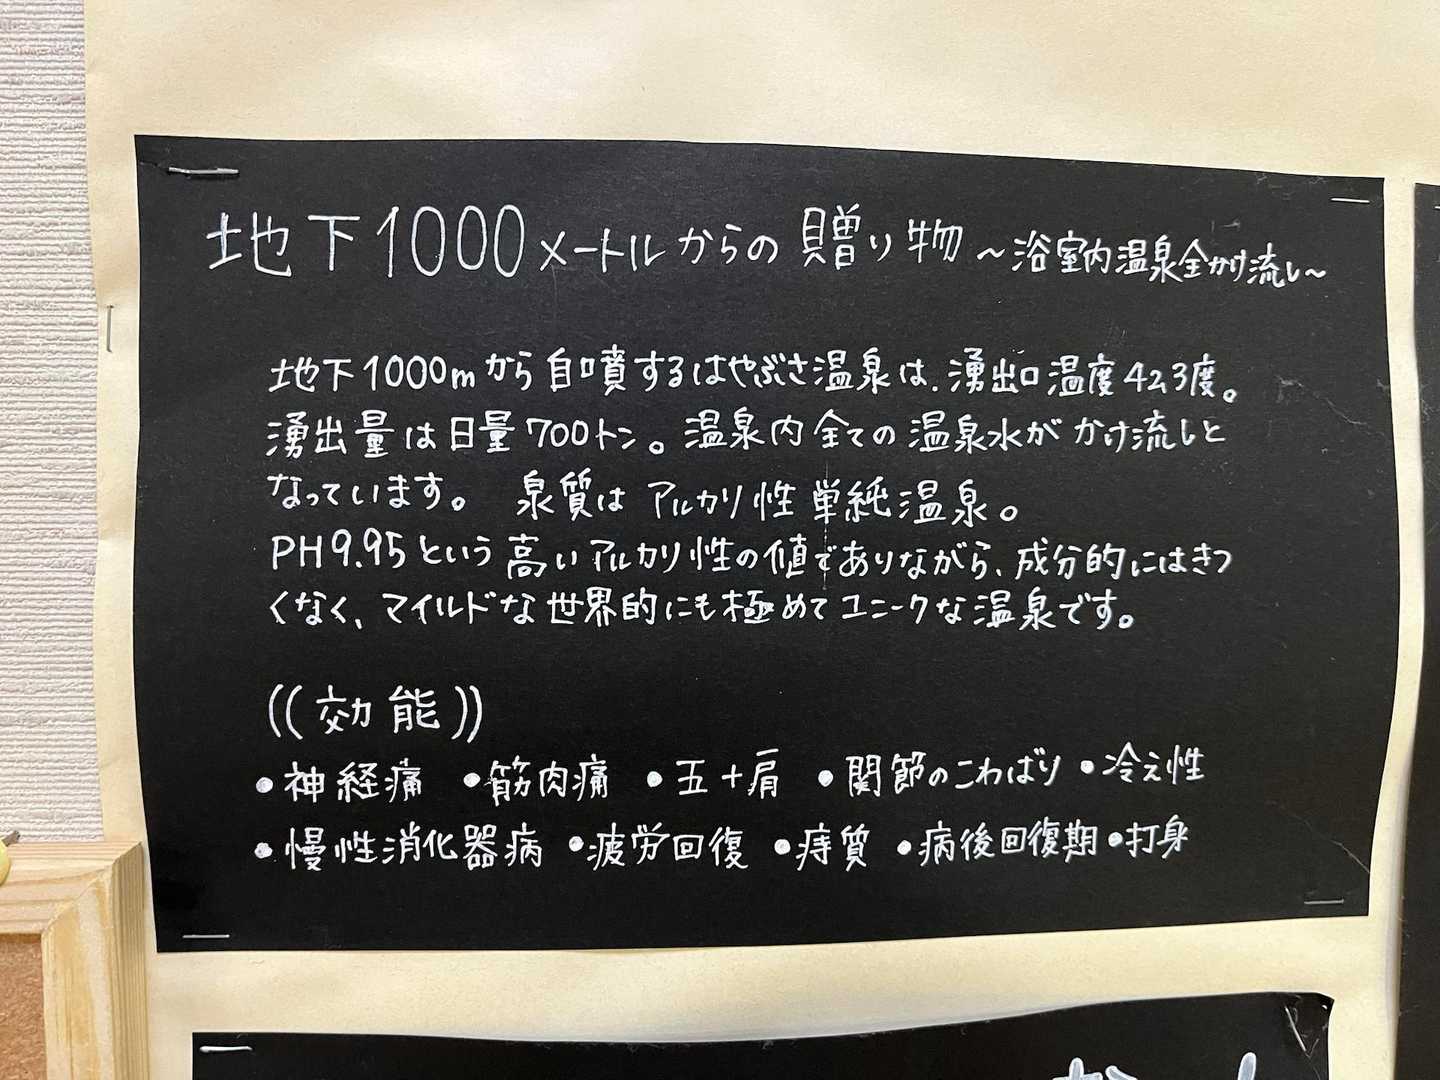 地下1000メートルからの贈り物 ~浴室内温泉全かけ流し~
地下1000mから自噴するはやぶさ温泉は、湧出口温度42.3度。
湧出量は日量700トン。温泉内全ての温泉水がかけ流しと
なっています。 泉質はアルカリ性単純温泉。
PH9.95という高いアルカリ性の値でありながら、成分的にはきつ
くなく、マイルドな世界的にも極めてユニークな温泉です。
((効能))
●神経痛 ●筋肉痛 ●五十肩 ●関節のこわばり ●冷え性
●慢性消化器病 ●疲労回復 ●痔質 ●病後回復期 ●打身